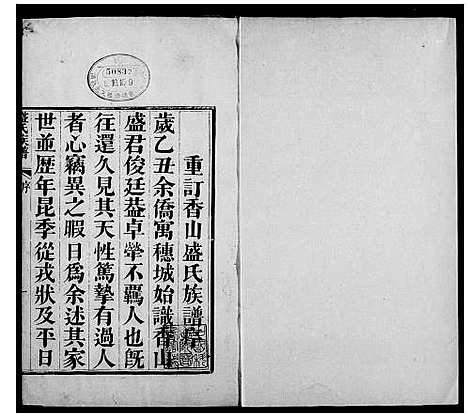 重訂香山盛氏族譜序
歲乙丑余僑寓穗城始識香山
盛君俊廷葢卓犖不羈人也既
往還久見其天性篤摯有過人
者心竊異之暇日為余述其家
世並歷年昆季從戎狀及平日
盛氏族譜
序
50832